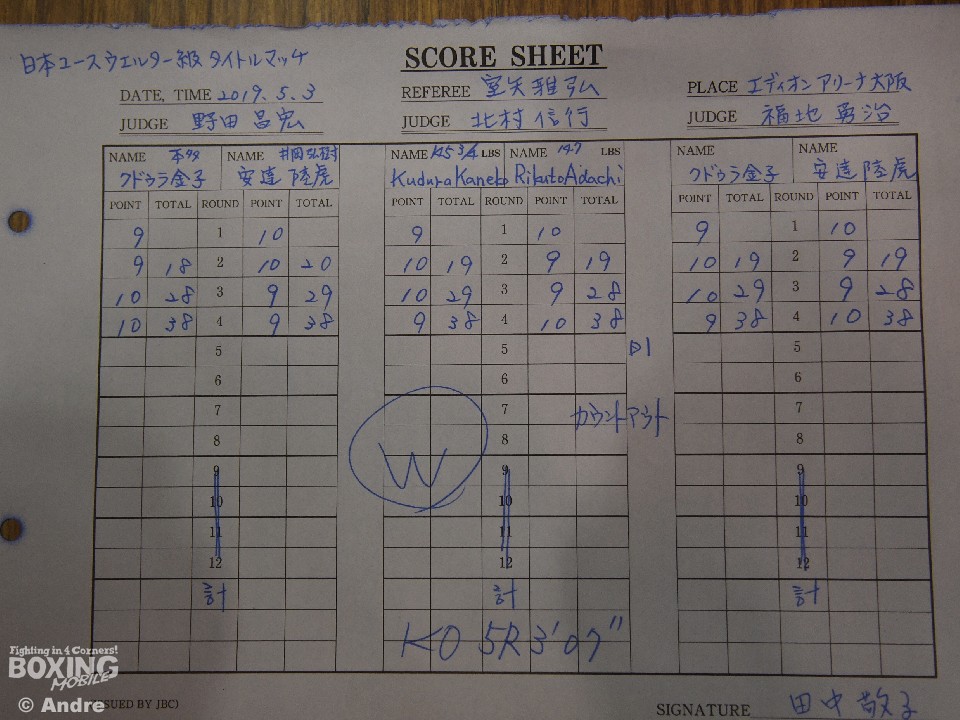 SCORE SHEET
日本ユースウエルター級タイトルマッチ
DATE, TIME 2019. 5. 3
REFEREE 室矢雅弘
PLACE エディオンアリーナ大阪
JUDGE 野田昌宏
JUDGE 北村信行
JUDGE 福地勇治
NAME 本タタ NAME 井岡弘樹
クドゥラ金子 安達陸虎
NAME 145 3/4 LBS NAME 147 LBS
Kudura Kaneko Rikuto Adachi
NAME NAME
クドゥラ金子 安達陸虎
POINT TOTAL ROUND POINT TOTAL
9 1 10
9 18 2 10 20
10 28 3 9 29
10 38 4 9 38
5
6
7
8
9
10
11
12
計
POINT TOTAL ROUND POINT TOTAL
9 1 10
10 19 2 9 19
10 29 3 9 28
9 38 4 10 38
5 D1
6
7 カウントアウト
8
W
9
10
11
12
計
KO 5R 3'07"
POINT TOTAL ROUND POINT TOTAL
9 1 10
10 19 2 9 19
10 29 3 9 28
9 38 4 10 38
5
6
7
8
9
10
11
12
計
SIGNATURE 田中敬子
SUED BY JBC)
Fighting in 4 Corners!
BOXING
MOBILE
© Andre